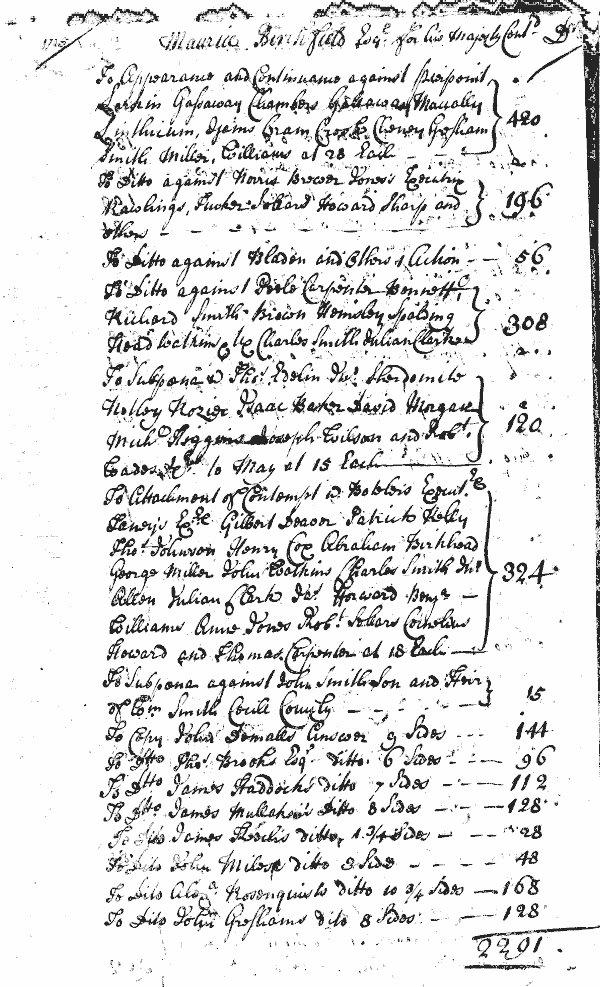 1725 Maurice Birchfield Esqr. for his Majesty Cont. Dr.
To Appearance and Continuance against Pierpoint,
Larkin Gassaway Chambers Gassaway Macnally
Linthicum, Ijams Gram Crook Cheney Gresham
Smith Miller, Williams at 28 Each — 420
To Ditto against Norris Brewer Jones's Executrix
Rawlings, Tucker Sollard Howard Sharp and 196
others
To Ditto against Bladen and Others 2 Action — 56
To Ditto against Poole Carpenter Bennett,
Richard Smith Brown Hemsley Spalding 308
Head Watkins & Ux Charles Smith Julian Clarke
To Subpena to Thos. Edelin Jno. Sherdomile
Notley Rozier Isaac Baker David Morgan
Michd. Hoggins Joseph Wilson and Robt. 120
Wades to May at 15 Each
To Attachment of Contempt to Botelers Execut.
Taneys Exrs. Gilbert Deavor Patrick Kelly
Thos. Johnson Henry Cox Abraham Birkhead
George Miller John Watkins Charles Smith Jno. 324
Allen Julian Clark Jas. Howard Benja. —
Williams Anne Jones Robt. Sollars Cornelius
Howard and Thomas Carpenter at 18 Each —
To Subpena against John Smith Son and Heir
of Wm. Smith Cecill County — 15
To Copy John Demalls Answer 9 Sides — 144
To Ditto Thos. Brooks Esqr. ditto 6 Sides — 96
To Ditto James Haddocks ditto 7 Sides — 112
To Ditto James Mullakin's Ditto 8 Sides — 128
To Ditto James ditto 1 3/4 Sides — 28
To Ditto John Miles ditto 3 Side — 48
To Ditto Alexr. Rosenquists ditto 10 3/4 Sides — 168
To Ditto John Greshams ditto 8 Sides — 128
2291